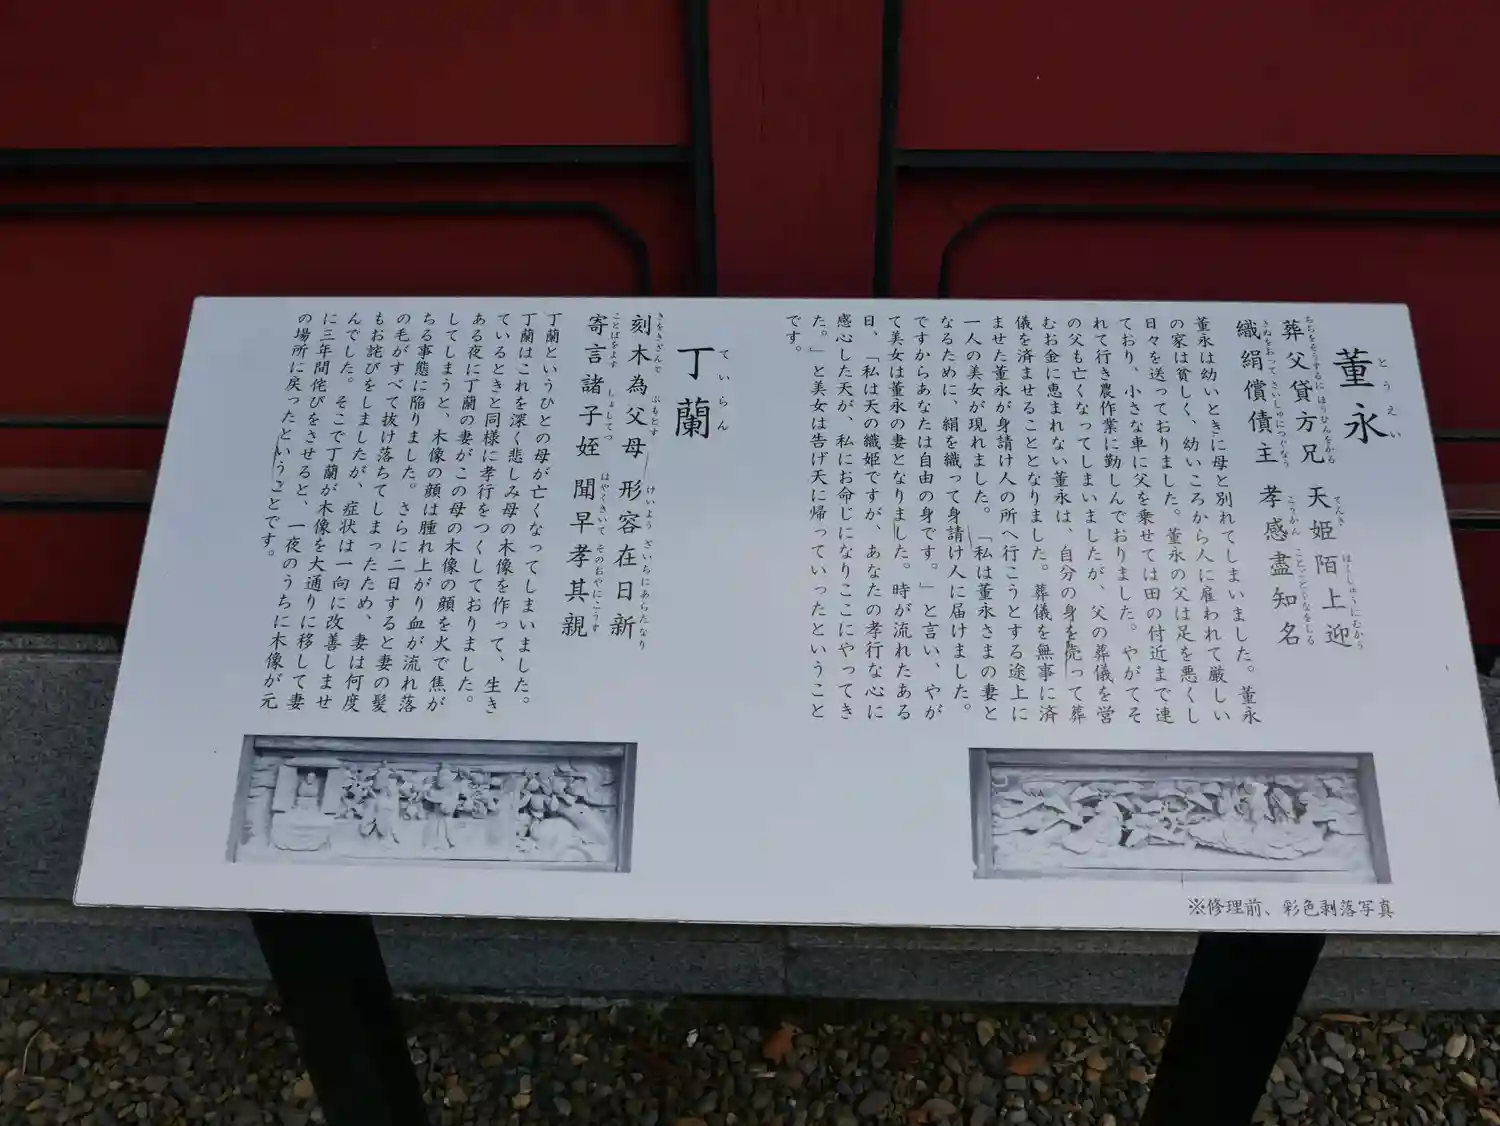 董永
とうえい
葬父貸方兄 天姫陌上迎
織絹償債主 孝感盡知名
董永は幼いときに母と別れてしまいました。董永
の家は貧しく、幼いころから人に雇われて厳しい
日々を送っておりました。董永の父は足を悪くし
ており、小さな車に父を乗せては田の付近まで連
れて行き農作業に勤しんでおりました。やがてそ
の父も亡くなってしまいましたが、父の葬儀を営
むお金に恵まれない董永は、自分の身を売って葬
儀を済ませることとなりました。葬儀を無事に済
ませた董永が身請け人の所へ行こうとする途上に
一人の美女が現れました。「私は董永さまの妻と
なるために、絹を織って身請け人に届けました。
ですからあなたは自由の身です。」と言い、やが
て美女は董永の妻となりました。時が流れたある
日、「私は天の織姫ですが、あなたの孝行な心に
感心した天が、私にお命じになりここにやってき
た。」と美女は告げ天に帰っていったということ
です。
丁蘭
ていらん
刻木為父母 形容在日新
寄言諸子姪 聞早孝其親
丁蘭というひとの母が亡くなってしまいました。
丁蘭はこれを深く悲しみ母の木像を作って、生き
ているときと同様に孝行をつくしておりました。
ある夜に丁蘭の妻がこの母の木像の顔を火で焦が
してしまうと、木像の顔は腫れ上がり血が流れ落
ちる事態に陥りました。さらに二日すると妻の髪
の毛がすべて抜け落ちてしまったため、妻は何度
もお詫びをしましたが、症状は一向に改善しませ
んでした。そこで丁蘭が木像を大通りに移して妻
に三年間侘びをさせると、一夜のうちに木像が元
の場所に戻ったということです。
※修理前、彩色剥落写真